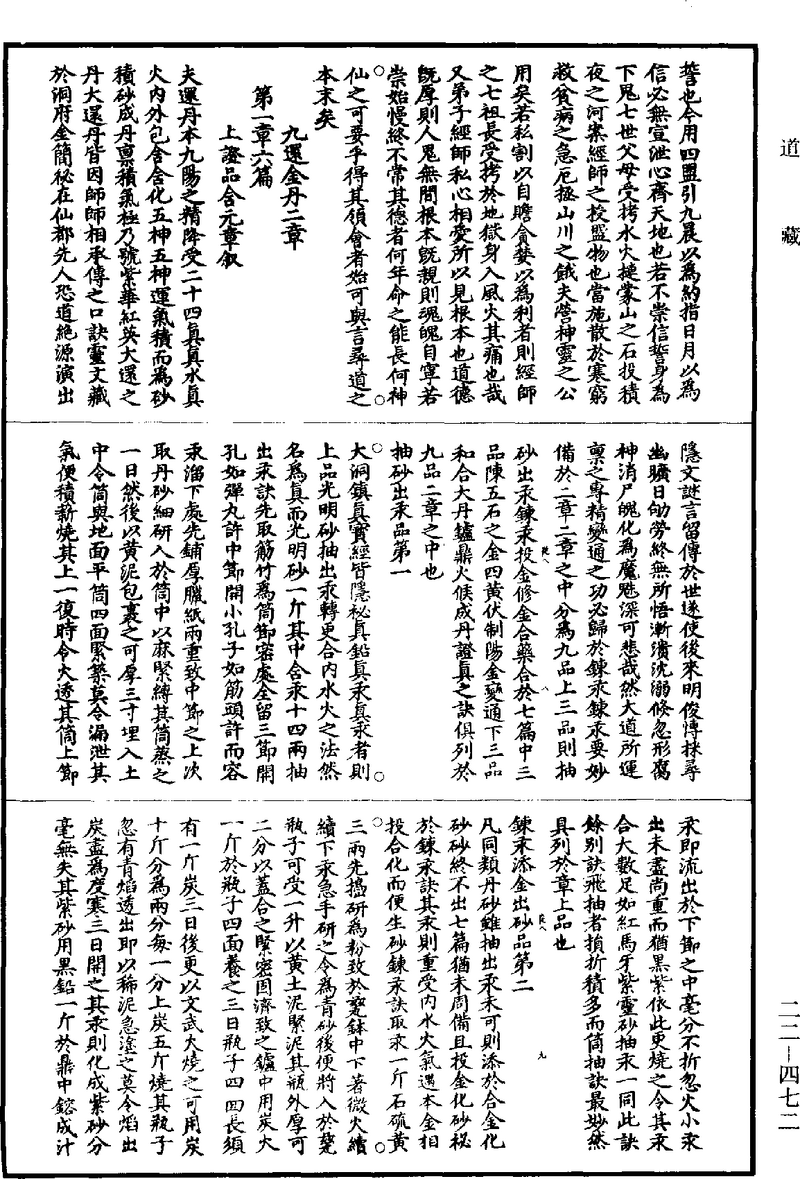 道藏
誓也今用四盟引九晨以為約指日月以為
信必無宣泄心齊天地也若不崇信誓身為
下鬼七世父母受拷水火揵蒙山之石投積
夜之河案經師之授盟物也當施散於寒窮
救貧病之急厄拯山川之餓夫營神靈之公
用矣若私割以自贍貪婪以為利者則經師
之七祖長受拷於地獄身入風火其痛也哉
又弟子經師私心相愛所以見根本也道德
既厚則人鬼無間根本既親則魂魄自寧若
崇始慢終不常其德者何年命之能長何神
仙之可要乎得其領會者始可與言尋道之
本末矣
九還金丹二章
第一章六篇
上證品含元章叙
夫還丹本九陽之精降受二十四真真水真
火內外包含含化五神五神運氣積而為砂
積砂成丹稟積氣極乃號紫華紅英大還之
丹大還丹皆因師師相承傳之口訣靈文藏
於洞府金簡秘在仙都先人恐道絕源演出
隱文謎言留傳於世遂使後來明俊慱採尋
幽曠日劬勞終無所悟漸潰沈溺倏忽形腐
神消尸魄化為魔魅深可悲哉然大道所運
稟之專精變通之功必歸於鍊汞鍊汞要妙
備於二章二章之中分為九品上三品則抽
砂出汞鍊汞投金修金合藥合於七篇中三
品陳五石之金四黃伏制陽金變通下三品
和合大丹鑪鼎火候成丹證真之訣俱列於
九品二章之中也
抽砂出汞品第一
大洞鎮真寶經皆隱秘真鉛真汞真汞者則
上品光明砂抽出汞轉更合內水火之法然
名為真而光明砂一斤其中含汞十四兩抽
出汞訣先取筋竹為筒節密處全留三節開
孔如彈丸許中節開小孔子如筋頭許而容
汞溜下處先鋪厚臘紙兩重致中節之上次
取丹砂細研入於筒中以麻緊縛其筒蒸之
一日然後以黃泥包裹之可厚三寸埋入土
中令筒與地面平筒四面緊築莫令漏泄其
氣便積薪燒其上一復時令火透其筒上節
汞即流出於下節之中毫分不折忽火小汞
出未盡尚重而猶黑紫依此更燒之令其汞
合大數足如紅馬牙紫靈砂抽汞一同此訣
餘別訣飛抽者損折積多而筒抽訣最妙然
具列於章上品也
鍊汞添金出砂品第二
凡同類丹砂雖抽出汞未可則添於合金化
砂砂終不出七篇猶未周備且投金化砂秘
於鍊汞訣其汞則重受內水火氣遇本金相
投合化而便生砂鍊汞訣取汞一斤石硫黃
三兩先擣研為粉致於甆鉢中下著微火續
續下汞急手研之令為青砂後便將入於甆
瓶子可受一升以黃土泥緊泥其瓶外厚可
二分以蓋合之緊密固濟致之鑪中用炭火
一斤於瓶子四面養之三日瓶子四面長須
有一斤炭三日後更以文武火燒之可用炭
十斤分為兩分每一分上炭五斤燒其瓶子
忽有青焰透出即以稀泥急塗之莫令焰出
炭盡為度寒三日開之其汞則化成紫砂分
毫無失其紫砂用黑鉛一斤於鼎中鎔成汁
二二－四七二